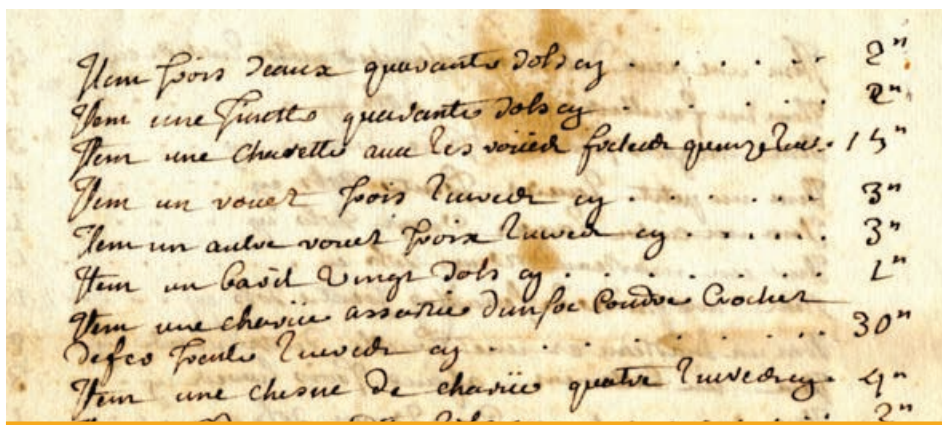 Item trois seaux quarante sols cy . . . . . . 2"
Item une tinette quarante sols cy . . . . . . 2"
Item une charette avec les roües quinze livres . 15"
Item un rouet trois livres cy . . . . . . 3"
Item un autre rouet trois livres cy . . . . . 3"
Item un baril vingt sols cy . . . . . . . 1"
Item une charüe assortie d'un soc Coudre Crochet
trente livres cy . . . . . . . . 30"
Item une chesne de charüe quatre livres cy . 4"